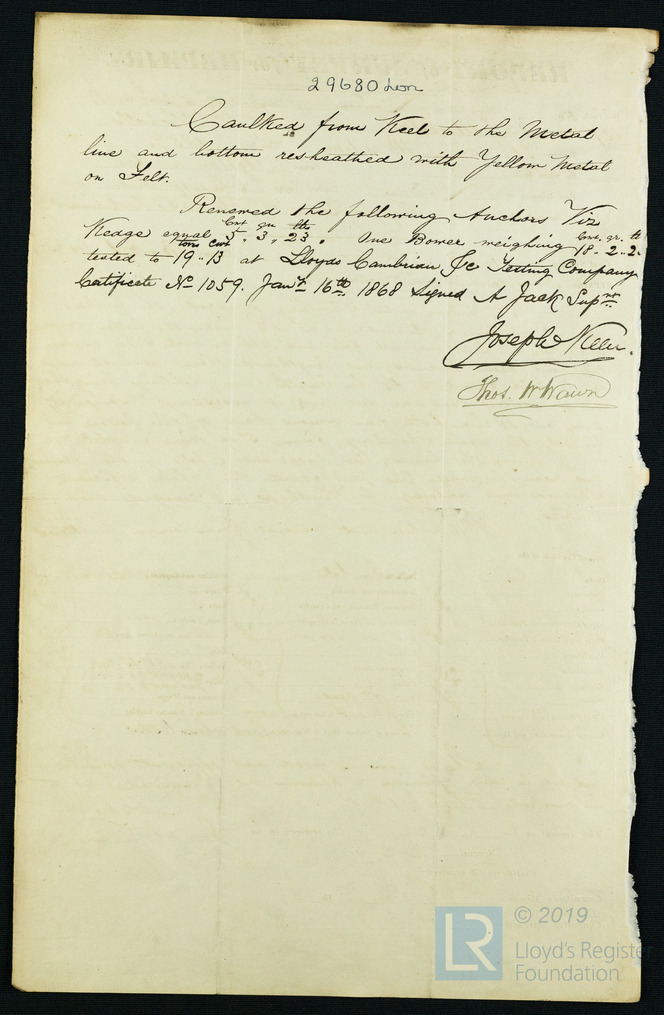 29680 Lon
Caulked from Keel to the Metal
line and bottom resheathed with Yellow Metal
on Felt.
Renewed the following Anchors Viz
Cwt qu lbs Cwt. qr. lb
Kedge equal 5, 3, 23, One Bower weighing 18-2-2.
tons cwt
tested to 19..13 at Lloyds Cambrian &c Testing Company
Certificate No 1059. Jany 16th 1868 Signed A Jack Supnr
Joseph
Thos. W Wawn
© 2019
LR
Lloyd's Register
Foundation